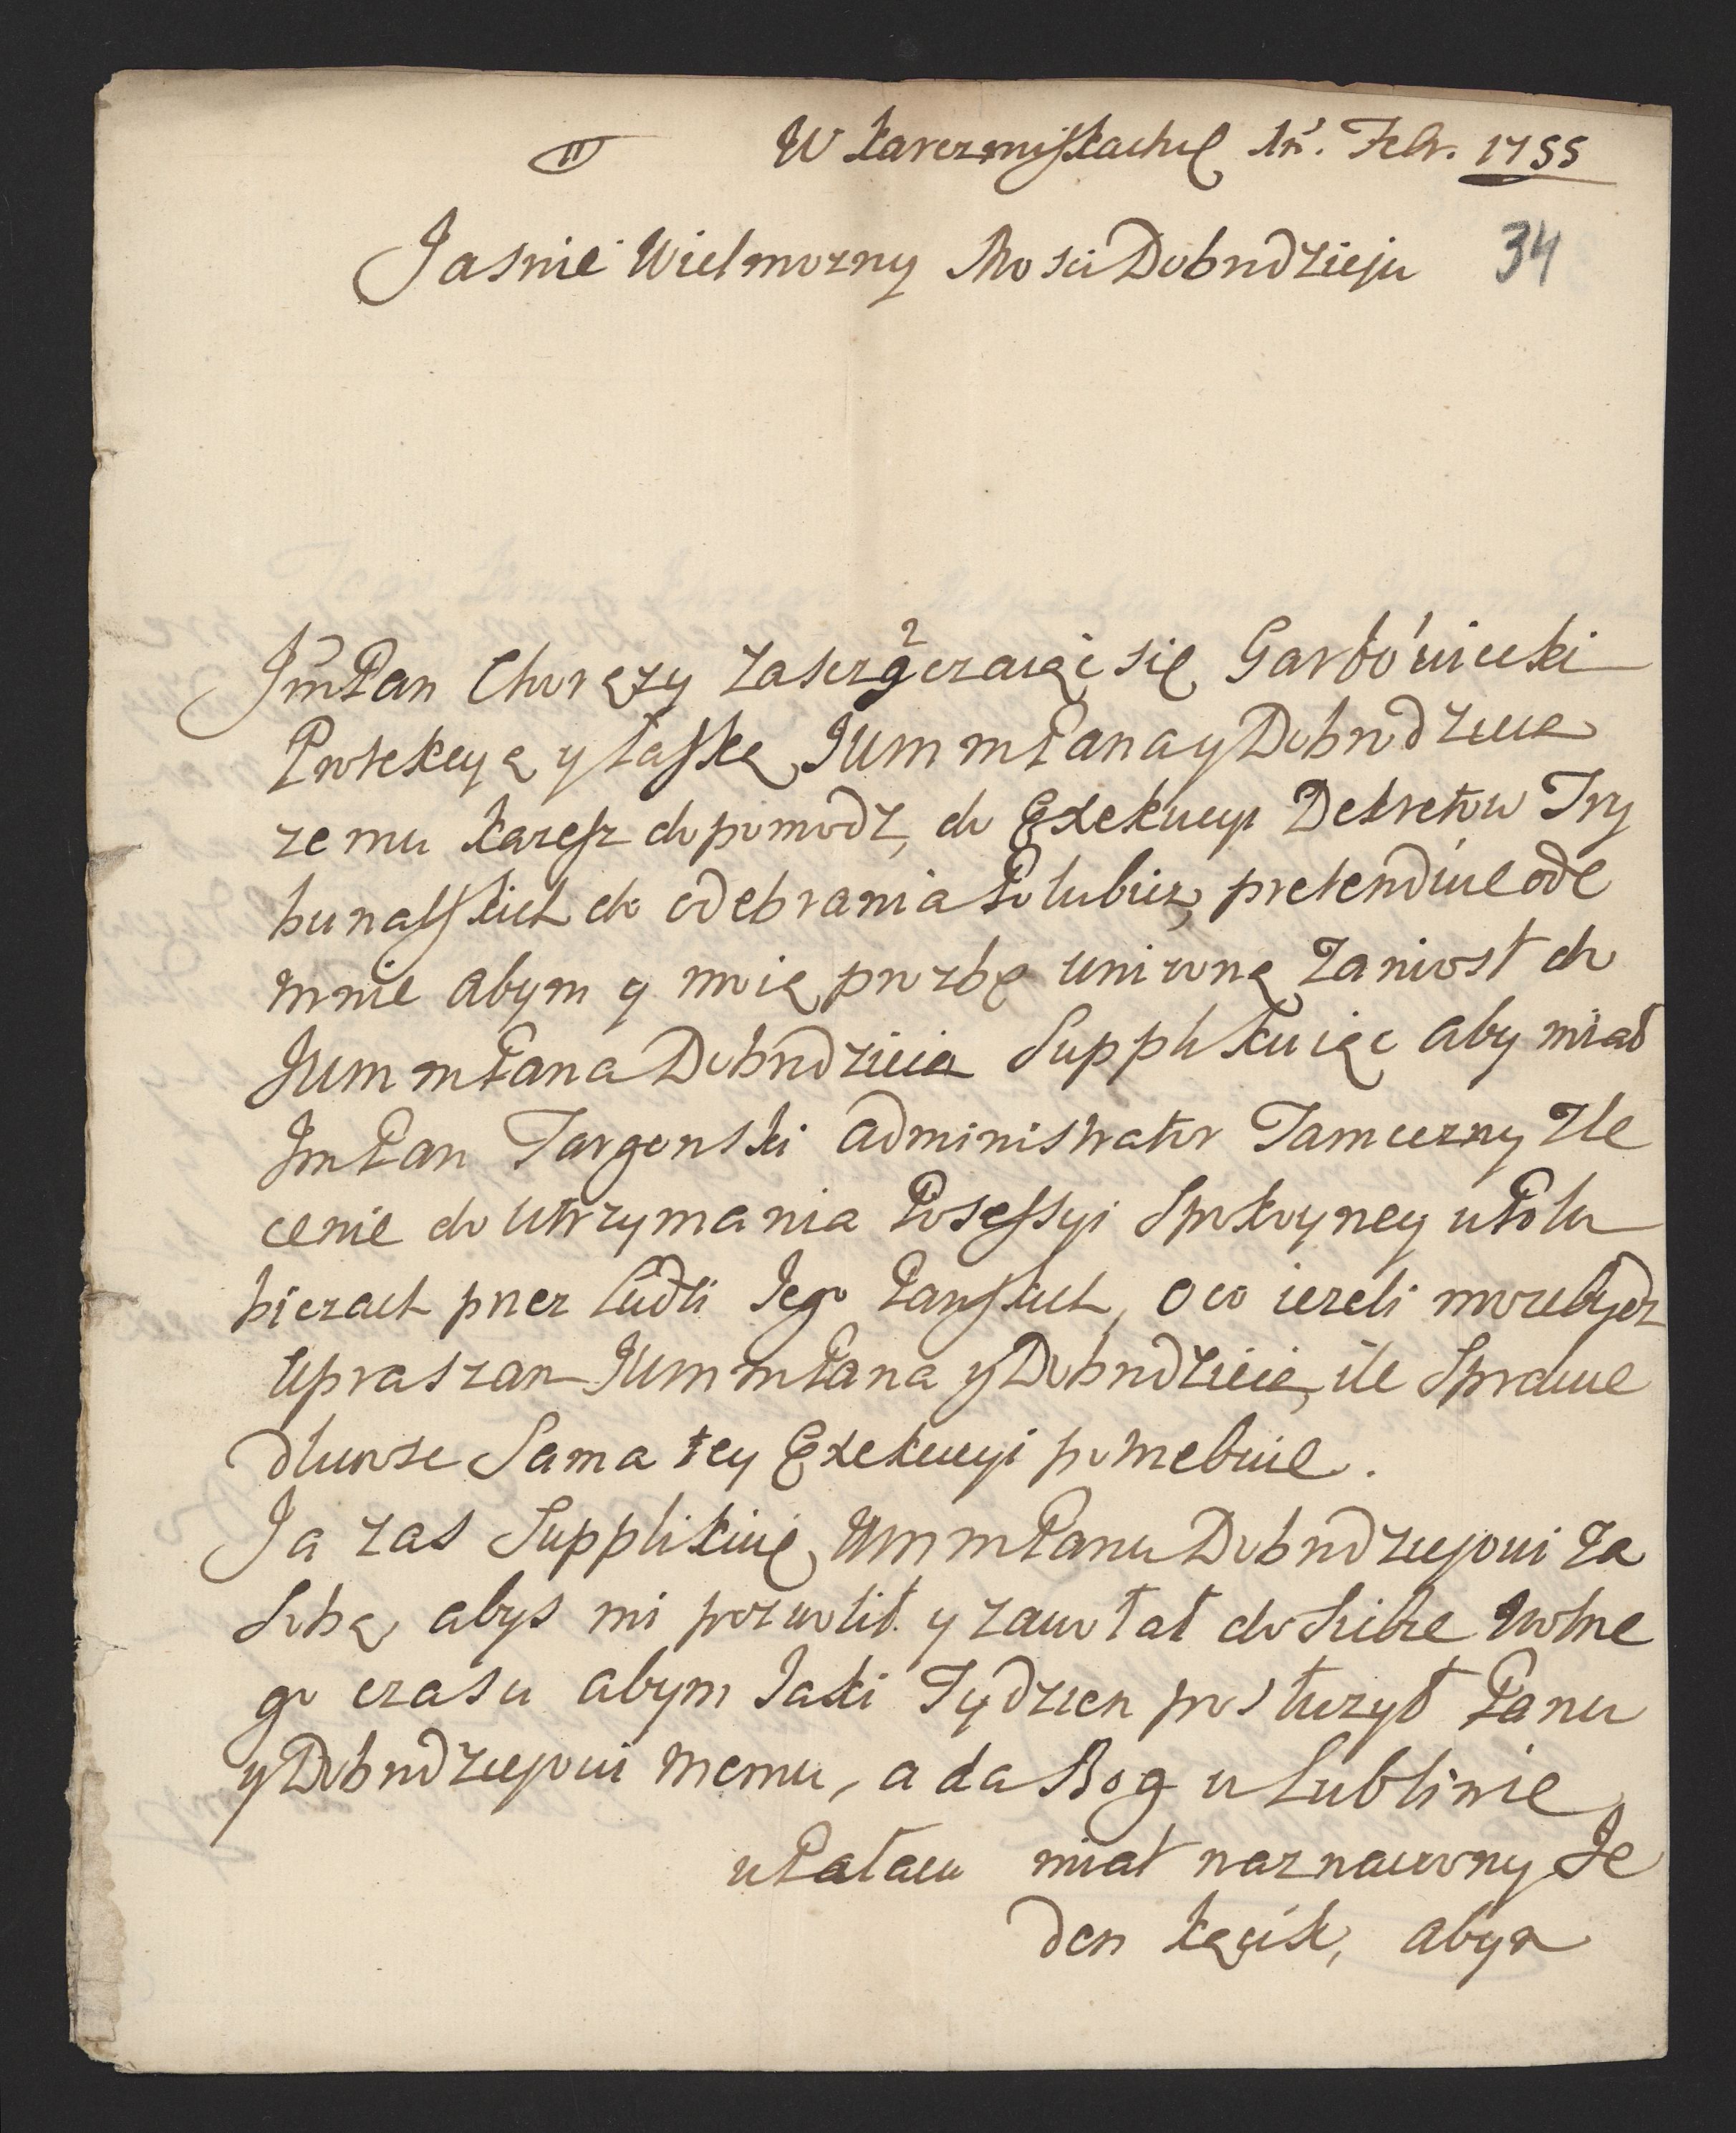 W Karczmiskach d. Febr. 1755
34
Jasnie Wielmozny Mosci Dobrodzieju
JmPan Chorązy zasczączaiąc się Garbowiecki
Protekcyą y łaską JWmmPana y Dobrodzieia
ze mu każesz dopomodz, do Exekucyi Dekretow Try
bunalskich do odebrania Polubicz, pretenduie ode
mnie abym y moią prozbę unizoną zaniosł do
JWmmPana Dobrodzieia Supplikuiąc aby miał
JmPan Targonski Administrator Tameczny Zle
cenie do utrzymania Possessyi Spokoyney w Polu
biczach przez ludzi Jego Panskich, oco iezeli moze bydz
upraszam JWmmPana y Dobrodzieia, ile Sprawie
dliwosc Sama tey Exekucyi potrzebuie.
Ja zas Supplikuię WmmPanu Dobrodziejowi Za
Sobą, abys mi pozwolił y zawołał do Siebie Wolne
go czasu abym Jaki Tydzien posłuzył Panu
y Dobrodziejowi memu, a da Bog w Lublinie
w Pałacu miał naznaczony Je
den kącik, abym